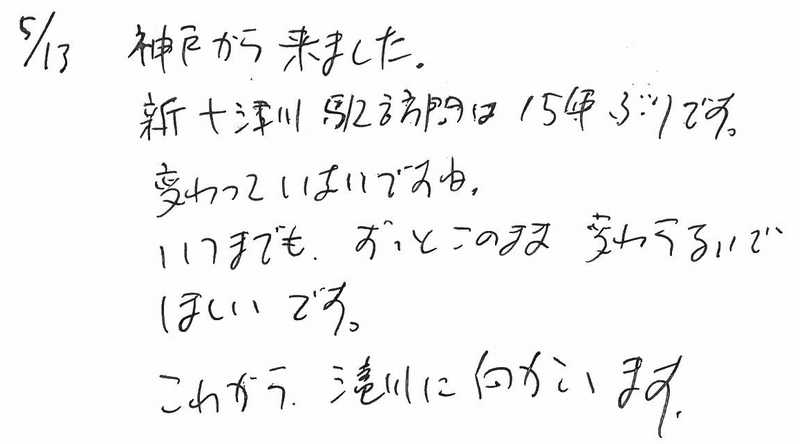 5/13 神戸から来ました。
新十津川駅訪問は15年ぶりです。
変わっていないですね。
いつまでも、ずっとこのまま変わらないで
ほしいです。
これから、滝川に向かいます。